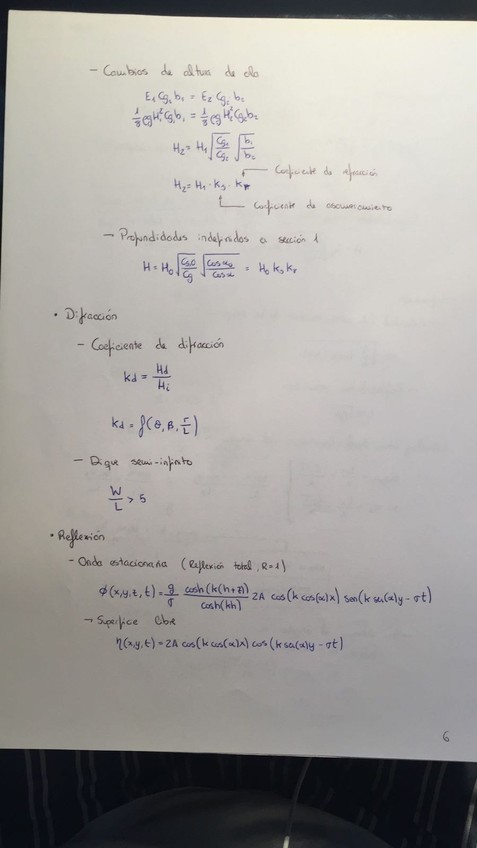 - Cambios de altura de ola
E₁ Cg₁ b₁ = E₂ Cg₂ b₂
1/8 ρg H₁² Cg₁ b₁ = 1/8 ρg H₂² Cg₂ b₂
H₂ = H₁ √(Cg₁/Cg₂) √(b₁/b₂)
Coeficiente de refracción
H₂ = H₁ · Ks · Kr
Coeficiente de asomeramiento
→ Profundidades indefinidas a sección 1
H = H₀ √(Cg,0/Cg) √(cos α₀/cos α) = H₀ ks kr
• Difracción
- Coeficiente de difracción
kd = Hd/Hi
kd = f(θ, β, r/L)
- Dique semi-infinito
W/L > 5
• Reflexión
- Onda estacionaria (Reflexión total, R=1)
ϕ(x,y,z,t) = g/σ cosh(k(h+z))/cosh(kh) 2A cos(k cos(α)x) sen(k sen(α)y - σt)
→ Superficie libre
η(x,y,t) = 2A cos(k cos(α)x) cos(k sen(α)y - σt)
6